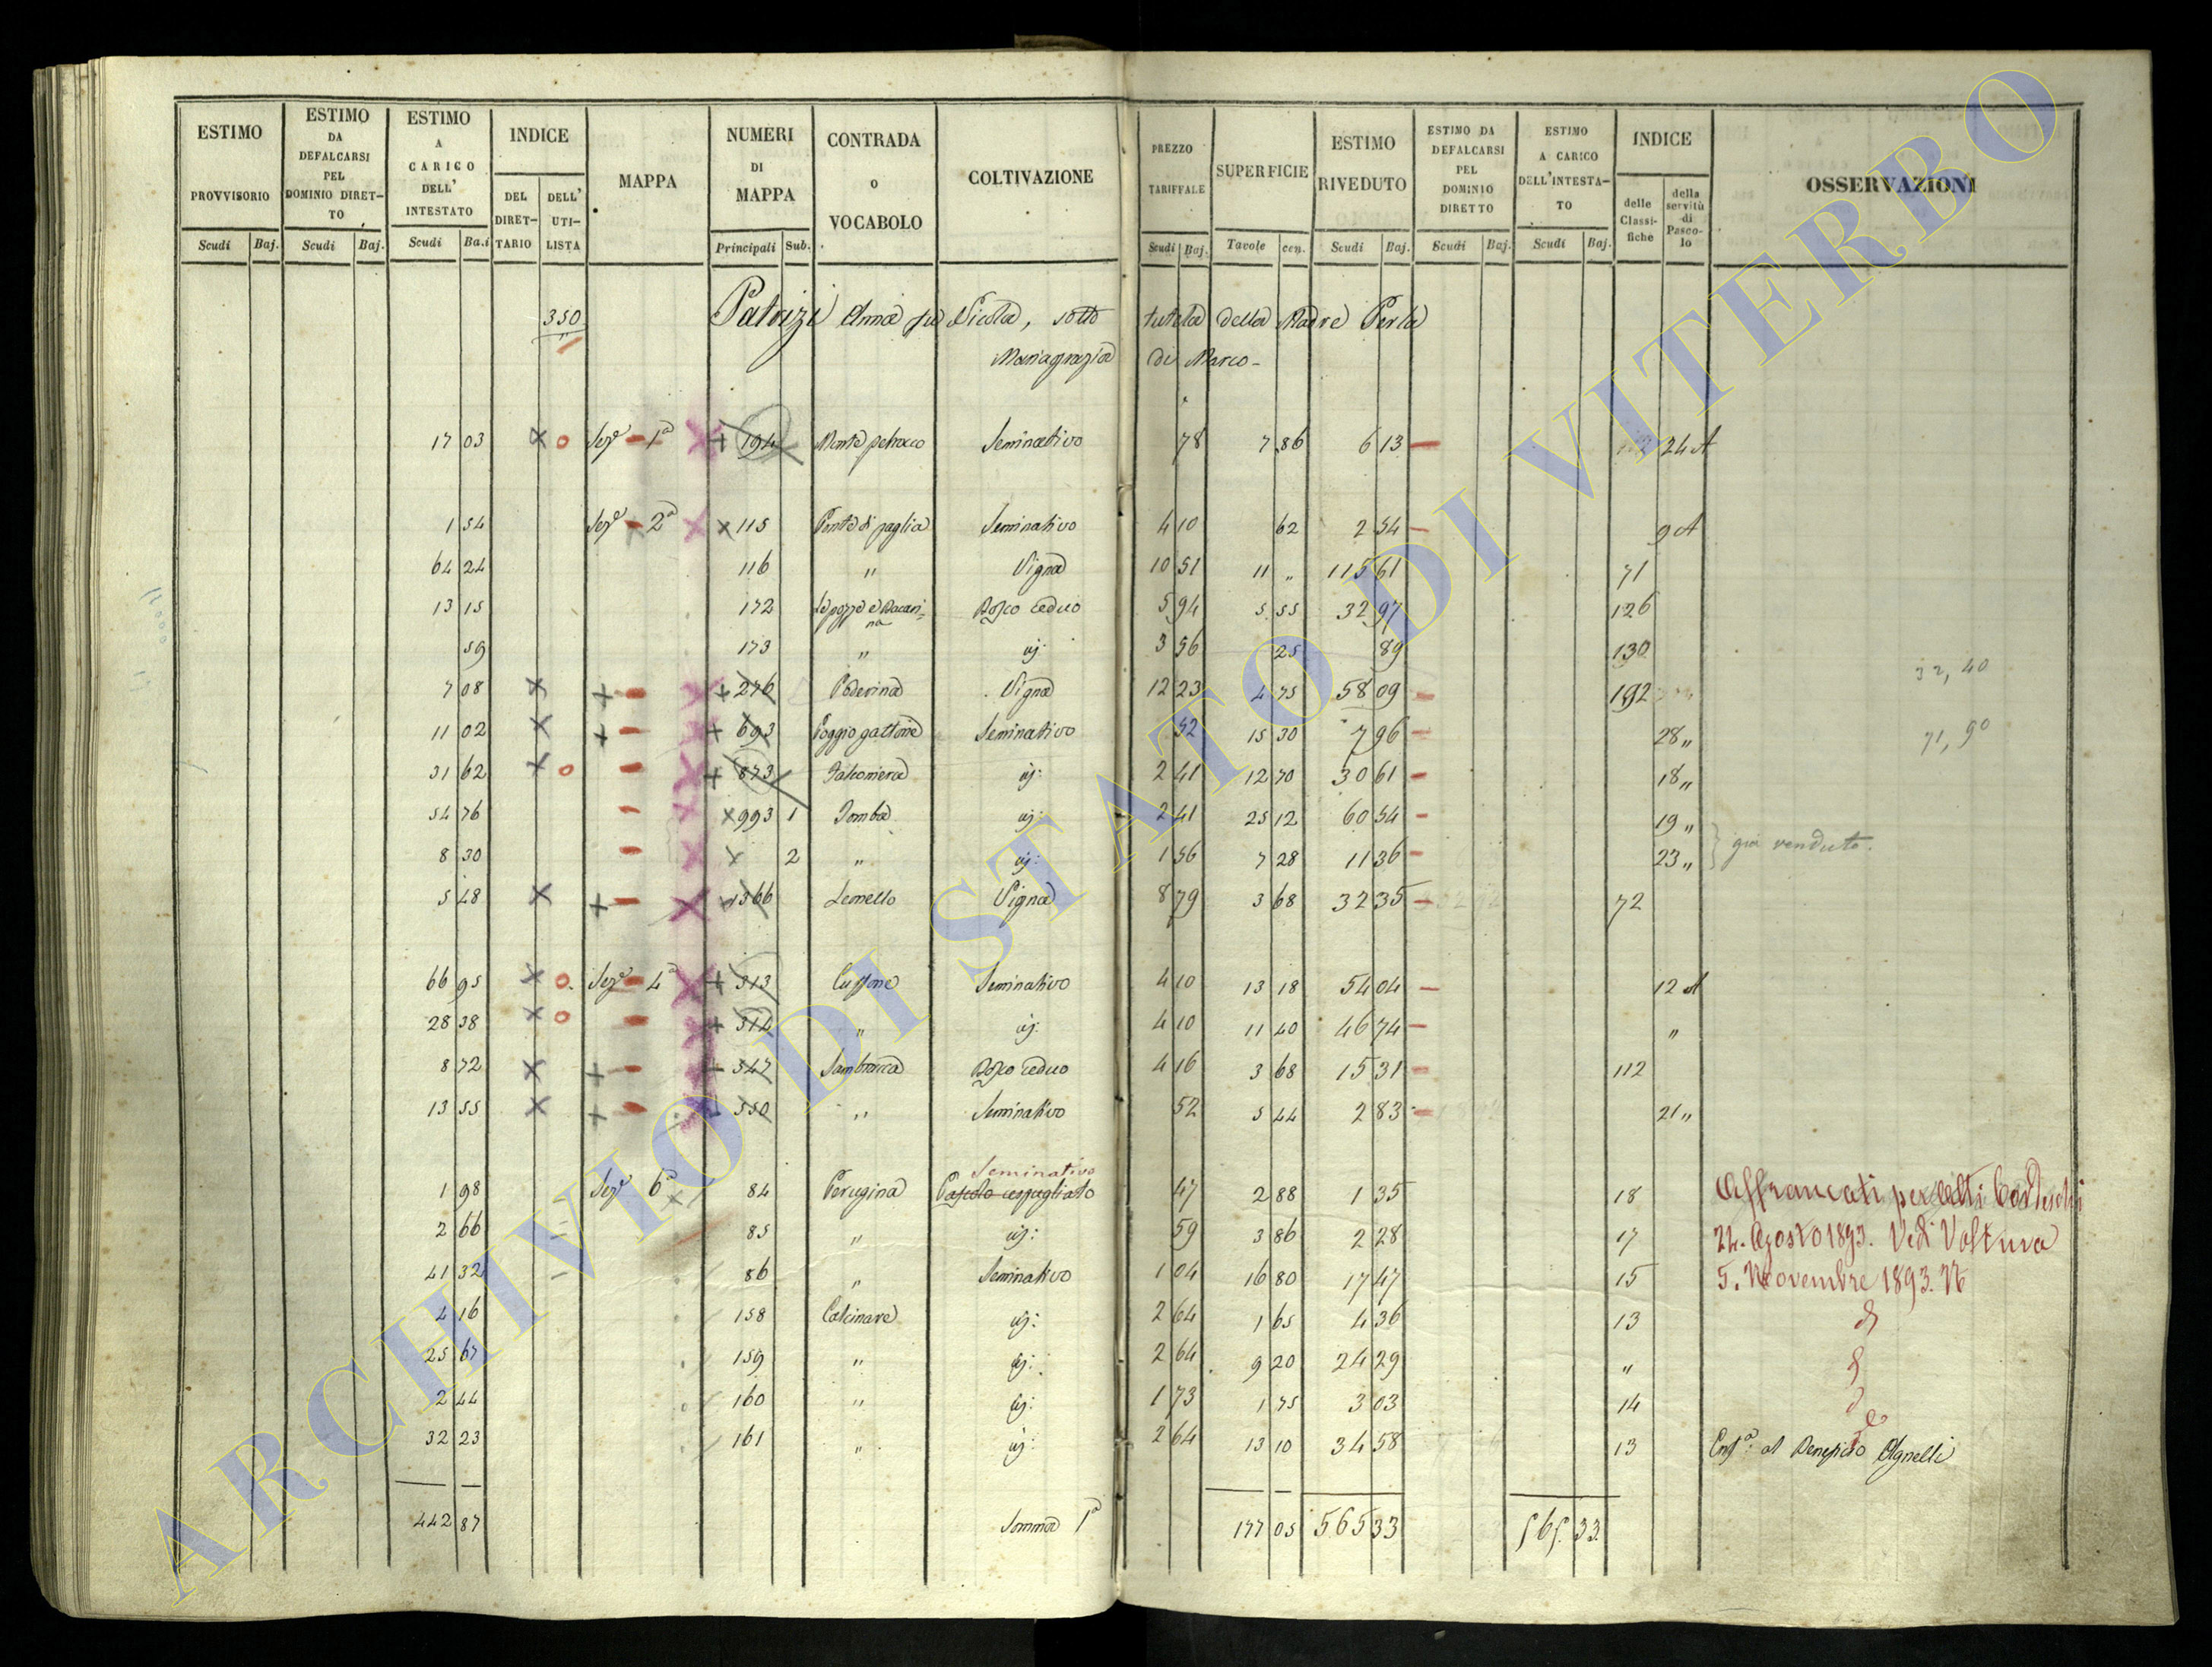 ESTIMO PROVVISORIO Scudi Baj. | ESTIMO DA DEFALCARSI PEL DOMINIO DIRET-TO Scudi Baj. | ESTIMO A CARICO DELL' INTESTATO Scudi Ba.i | INDICE DEL DIRET-TARIO DELL' UTI-LISTA | MAPPA | NUMERI DI MAPPA Principali Sub. | CONTRADA O VOCABOLO | COLTIVAZIONE | PREZZO TARIFFALE Scudi Baj. | SUPERFICIE Tavole cen. | ESTIMO RIVEDUTO Scudi Baj. | ESTIMO DA DEFALCARSI PEL DOMINIO DIRETTO Scudi Baj. | ESTIMO A CARICO DELL'INTESTA-TO Scudi Baj. | INDICE delle Classi-fiche della servitù di Pasco-lo | OSSERVAZIONI
350 Patrizi Anna fu Nicola, sotto tutela della Madre Perla
Mariagrazia di Marco -
17 03 × o Sezе 1ª + 194 Seminativo 78 7 86 6 13 24 A
1 54 Sezе 2ª × 115 Ponte di paglia Seminativo 4 10 62 2 54 9 A
64 24 116 " Vigna 10 51 11 " 115 61 71
13 15 172 Bosco ceduo 5 94 5 55 32 97 126
59 173 " id: 3 56 25 89 130
32, 40
7 08 × + + 276 Poderina Vigna 12 23 4 75 58 09 192
11 02 × + + 693 Poggio gattone Seminativo 52 15 30 7 96 28 "
71, 90
31 62 × o + 873 Falconiera id: 2 41 12 70 30 61 18 "
54 76 × 993 1 Tomba id: 2 41 25 12 60 54 19 "
già venduto.
8 30 × 2 " id: 1 56 7 28 11 36 23 "
5 48 × + 1366 Lemello Vigna 8 79 3 68 32 35 72
66 95 × o Sezе 4ª + 313 Seminativo 4 10 13 18 54 04 12 A
28 38 × o + 314 " id: 4 10 11 40 46 74 "
8 72 × + 347 Bosco ceduo 4 16 3 68 15 31 112
13 55 × + 350 " Seminativo 52 5 44 2 83 21 "
Seminativo
1 98 Sezе 6ª 84 Perugina Pascolo cespugliato 47 2 88 1 35 18 Affrancati per atti
2 66 85 " id: 59 3 86 2 28 17 22. Agosto 1893. Vedi Voltura
41 32 86 " Seminativo 1 04 16 80 17 47 15 5. Novembre 1893.
4 16 158 Calcinare id: 2 64 1 65 4 36 13
25 67 159 " id: 2 64 9 20 24 29 "
2 44 160 " id: 1 73 1 75 3 03 14
32 23 161 " id: 2 64 13 10 34 58 13 al Beneficio Agnelli
442 87 Somma 1ª 177 05 565 33 565. 33.
ARCHIVIO DI STATO DI VITERBO